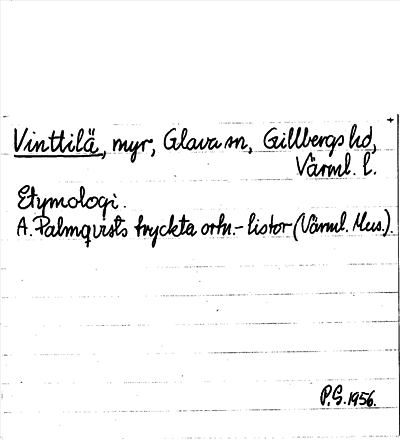 Vinttilä, myr, Glava sn, Gillbergs hd,
Värml. l.
Etymologi.
A. Palmqvists tryckta ortn.-listor (Värml. Mus.).
P.G. 1956.